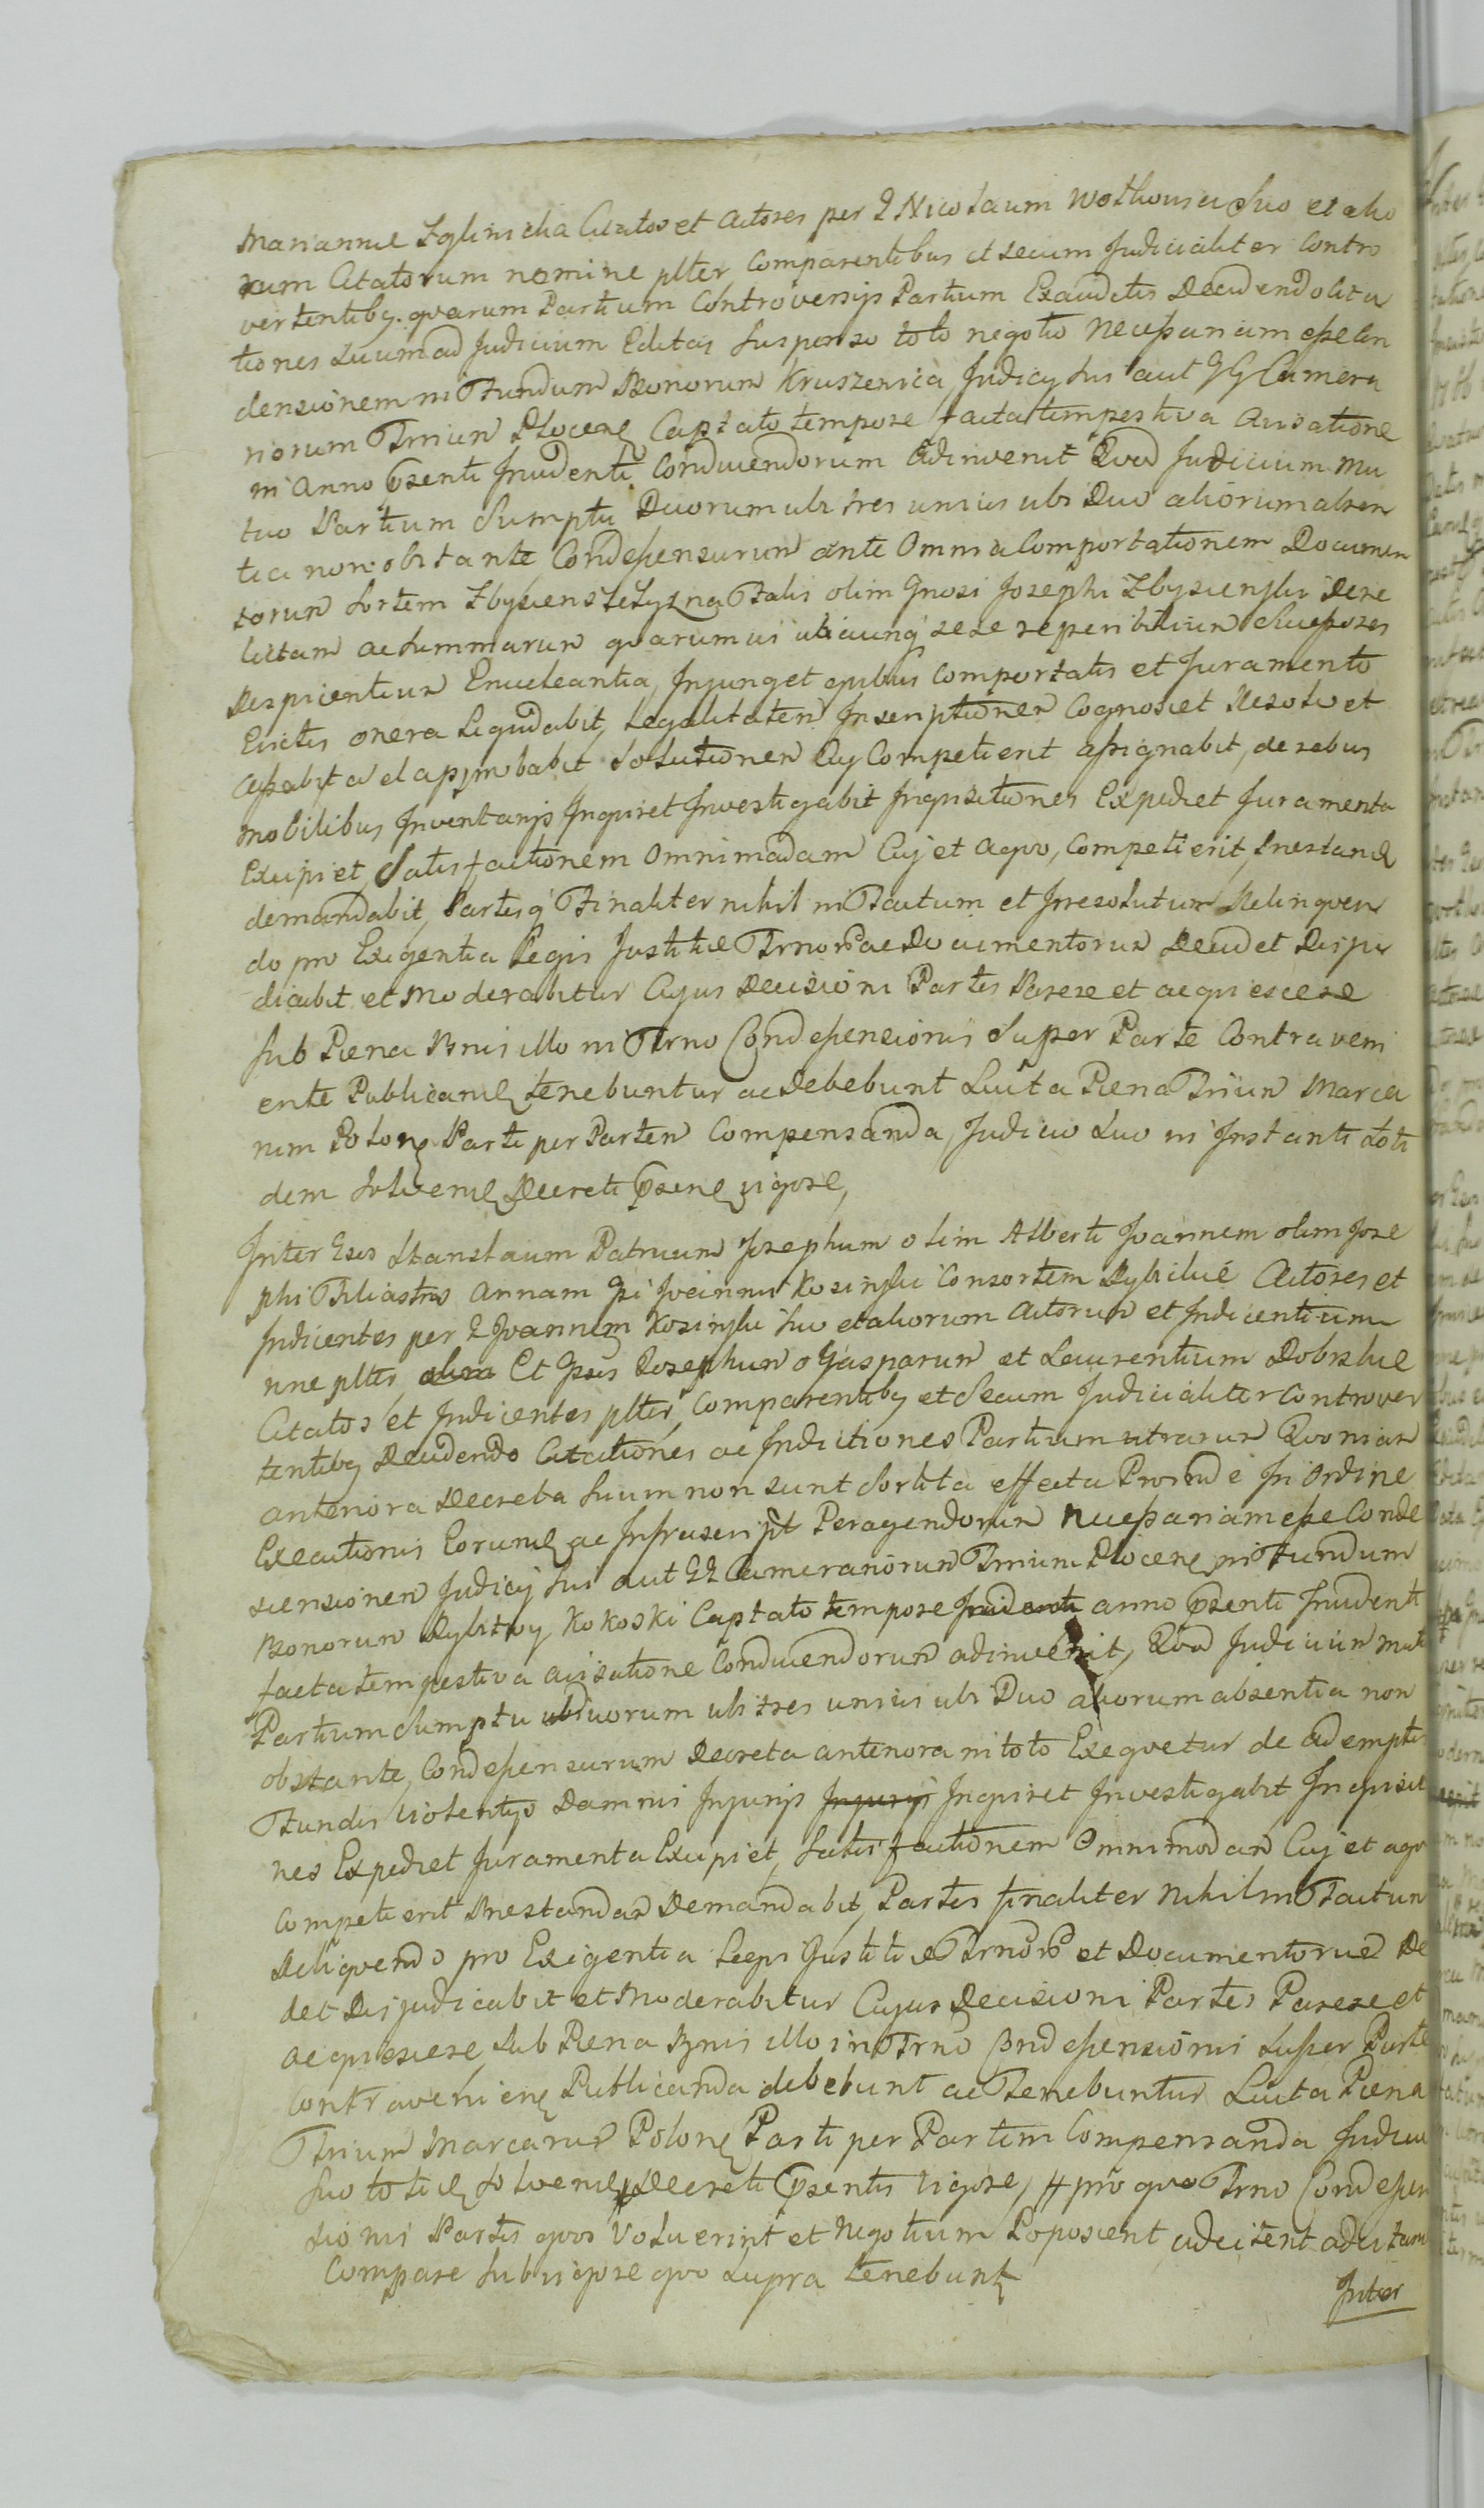 Mariannæ Zglinicka Citatos et Actores per G Nicolaum suo et alio
rum Citatorum nomine plter Comparentibus et secum Judicialiter Contro
vertentibq. qvarum Partium Controversijs Partium Exauditis Decidendo Cita
tiones suum ad Judicium Editas suspenso toto negotio Necessariam esse Con
densionem in Fundum Bonorum Kruszenica, Judicij sui aut GG Camera
riorum Trrium Plocen Captato tempore facta tempestiva Avisatione
in Anno psenti Inudenti Conducendorum adinvenit Qvod Judicium Mu
tuo Partium Sumptu Duorum ubi tres unius ubi Duo aliorum absen
tia non obstante, Condescensurum ante Omnia Comportationem Documen
torum Sortem Zbysiensz Fatis olim Gnosi Josephi Zbysienski Dere
lictam ac Summarum qvarumvis ubicunq sese reperibilium Successores
Respicientium Enucleantia, Injunget qvibus Comportatis et Juramento
Evictis onera Liqvidabit, Legalitatem Inscriptionem Cognoscet Resolvet
Cassabit vel approbabit Solutionem Cuj Competierit assignabit, de rebus
mobilibus Inventarijs Inqviret Investigabit Inqvisitiones Expediet Juramenta
Excipiet, Satisfactionem Omnimodam Cuj et aqvo, Competierit, Prestand
demandabit, Partesq Finaliter nihil in Factum et Irresolutum Relinqven
do pro Exigentia Legis Justitiæ Trrnorp ac Documentorum Decidet Disju
dicabit et Moderabitur Cujus Decisioni Partes Parere et acqviescere
sub Pæna Bnis illo in Trno Condescensionis Super Parte Contraveni
ente Publicand tenebuntur ac Debebunt Luita Pæna Trium Marca
rum Polon Parti per Partem Compensanda, Judicio suo in Instanti toti
dem Solvend Decreti psen vigore,
Inter Gsos Stanislaum Patruum Josephum olim Alberti Joannem olim Jose
phi Filiastros Annam Gsi Joannis Kosinski Consortem Rybskie Actores et
Indicentes per G Joannem Kosinski suo et aliorum Actorum et Indicentium
nne plter, Et Gsos Josephum Gasparum et Laurentium Dobrskie
Citatos et Indicentes plter, Comparentibq et Secum Judicialiter Controver
tentibq Decidendo Citationes ac Indictiones Partium utrarum Qvoniam
anteriora Decreta suum non sunt Sortita effectu Proinde In Ordine
Executionis Eorund ac Infrascript Peragendorum Necessariam esse Conde
scensionem Judicij sui aut GG Camerariorum Trrium Plocen in Fundum
Bonorum Rybitwy Kokoski Captato tempore Inudenti anno psenti Inudenti
facta tempestiva avisatione Conducendorum adinvenit, Qvod Judicium Mutuo
Partium Sumptu Duorum ubi tres unius ubi Duo aliorum absentia non
obstante, Condescensurum Decreta anteriora in toto Exeqvetur de ademptis
Fundis violentijs Damnis Injurijs Injurijs Inqviret Investigabit Inqvisitio
nes Expediet Juramenta Excipiet, Satisfactionem Omnimodam Cuj et aqvo
Competierit Prestandam Demandabit, Partes finaliter Nihil in Factum
Reliqvendo pro Exigentia Legis Justitiæ Trrnorp et Documentorum Deci
det Disjudicabit et Moderabitur Cujus Decisioni Partes Parere et
acqviescere Sub Pæna Bnis illo in Trno Condescensionis super Parte
Contravenien Publicanda debebunt ac Tenebuntur Luita Pæna
Trium Marcarum Polon Parti per Partem Compensanda Judicio
suo totid Solvend Decreti psentis vigore, # pro qvo Trno Condescen
sionis Partes qvos Voluerint et Negotium Poposcerit adcitent adcitum
Compare Sub vigore qvo Supra tenebunt
Inter